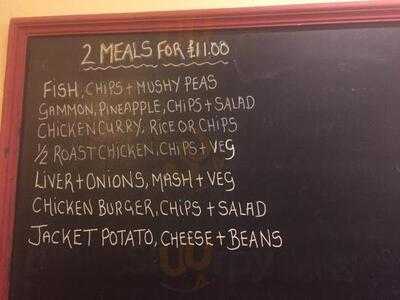 2 MEALS FOR £11.00
FISH, CHIPS + MUSHY PEAS
GAMMON, PINEAPPLE, CHIPS + SALAD
CHICKEN CURRY, RICE OR CHIPS
1/2 ROAST CHICKEN, CHIPS + VEG
LIVER + ONIONS, MASH + VEG
CHICKEN BURGER, CHIPS + SALAD
JACKET POTATO, CHEESE + BEANS